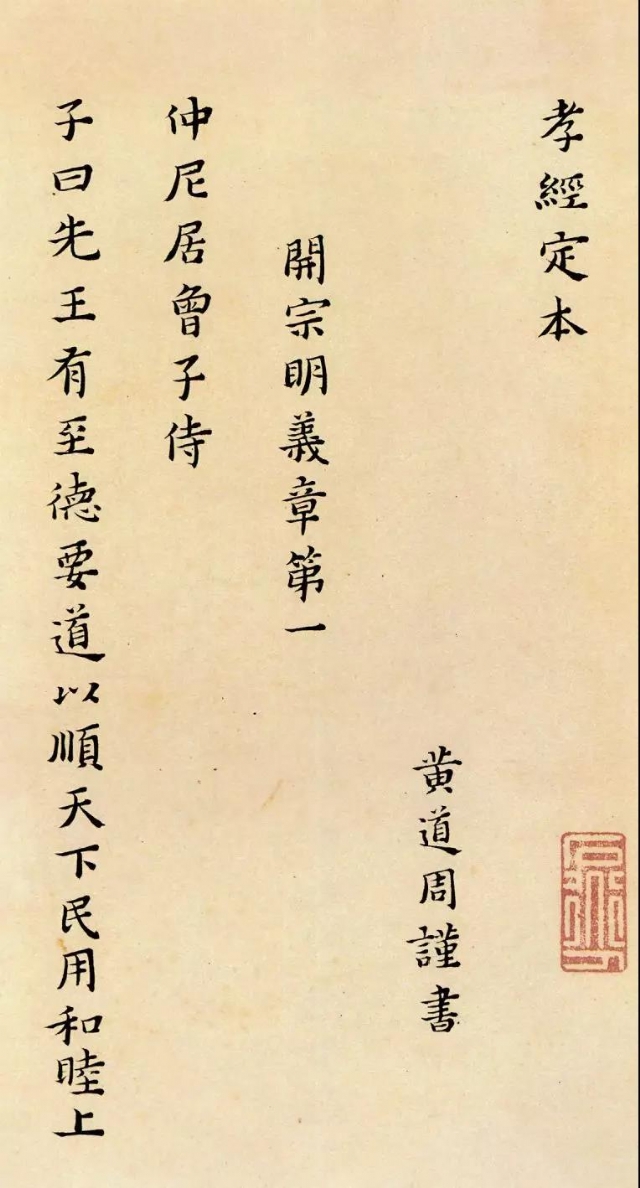 孝經定本
黄道周謹書
開宗明義章第一
仲尼居曾子侍
子曰先王有至德要道以順天下民用和睦上